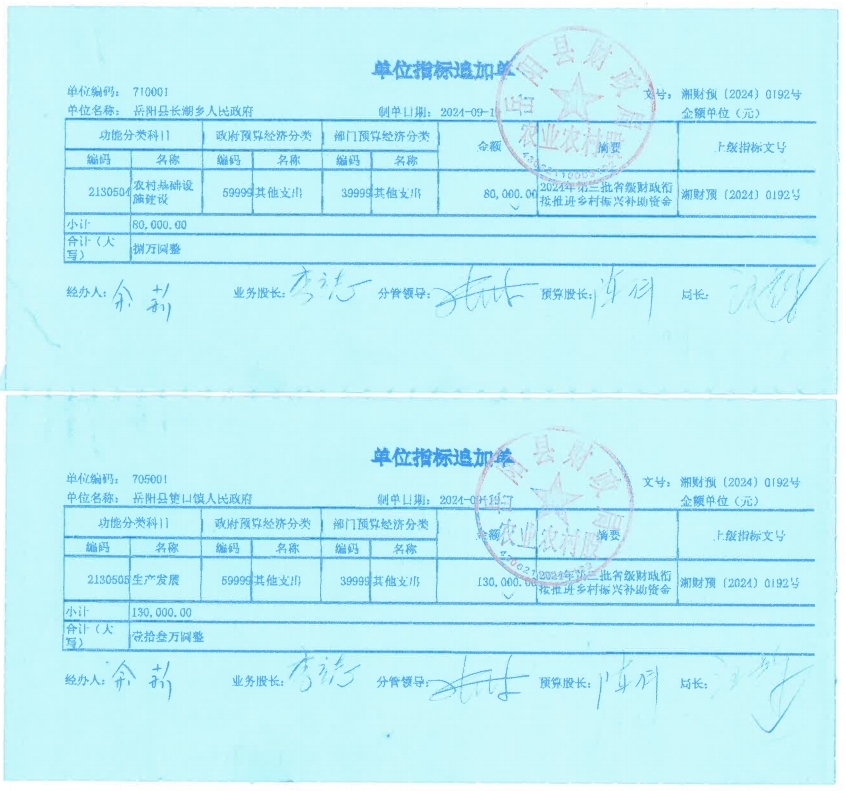 单位指标追加单
单位编码： 710001 文号： 湘财预〔2024〕0192号
单位名称： 岳阳县长湖乡人民政府 制单日期： 2024-09-1 金额单位（元）
功能分类科目 政府预算经济分类 部门预算经济分类 金额 摘要 上级指标文号
编码 名称 编码 名称 编码 名称
2130504 农村基础设施建设 59999 其他支出 39999 其他支出 80,000.00 2024年第三批省级财政衔接推进乡村振兴补助资金 湘财预〔2024〕0192号
小计 80,000.00
合计（大写） 捌万圆整
经办人： 余莉 业务股长： 分管领导： 预算股长： 局长：
岳阳县财政局
农业农村股
单位指标追加单
单位编码： 705001 文号： 湘财预〔2024〕0192号
单位名称： 岳阳县筻口镇人民政府 制单日期： 2024-09- 金额单位（元）
功能分类科目 政府预算经济分类 部门预算经济分类 金额 摘要 上级指标文号
编码 名称 编码 名称 编码 名称
2130505 生产发展 59999 其他支出 39999 其他支出 130,000.00 2024年第三批省级财政衔接推进乡村振兴补助资金 湘财预〔2024〕0192号
小计 130,000.00
合计（大写） 壹拾叁万圆整
经办人： 余莉 业务股长： 分管领导： 预算股长： 局长：
岳阳县财政局
农业农村股